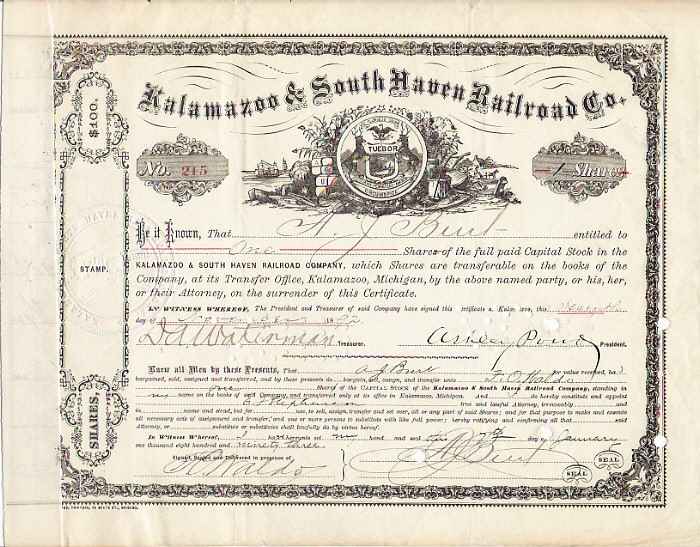 Kalamazoo & South Haven Railroad Co.
$100.
TUEBOR
No. 245
1 Shares
Be it Known, That A. J. Burt entitled to
One Shares of the full paid Capital Stock in the
KALAMAZOO & SOUTH HAVEN RAILROAD COMPANY, which Shares are transferable on the books of the
STAMP.
Company, at its Transfer Office, Kalamazoo, Michigan, by the above named party, or his, her,
or their Attorney, on the surrender of this Certificate.
IN WITNESS WHEREOF, The President and Treasurer of said Company have signed this
day of 18
D A Waterman Treasurer. Ashley Pond President.
Know all Men by these Presents, That A J Burt for value received, had
bargained, sold, assigned and transferred, and by these presents do bargain, sell, assign, and transfer unto
One Share of the CAPITAL STOCK of the Kalamazoo & South Haven Railroad Company, standing in
my name on the books of said Company, and transferred only at its office in Kalamazoo, Michigan. And do hereby constitute and appoint
true and lawful Attorney, irrevocably and
name and stead, but for use, to sell, assign, transfer and set over, all or any part of said Shares; and for that purpose to make and execute
all necessary acts of assignment and transfer, and one or more persons to substitute with like full power; hereby ratifying and confirming all that said
Attorney, or substitute or substitutes shall lawfully do by virtue hereof.
In Witness Whereof, I have hereunto set my hand and seal day of January
one thousand eight hundred and ninety three
Signed, Sealed and Delivered in presence of
A J Burt SEAL
SEAL
SHARES,